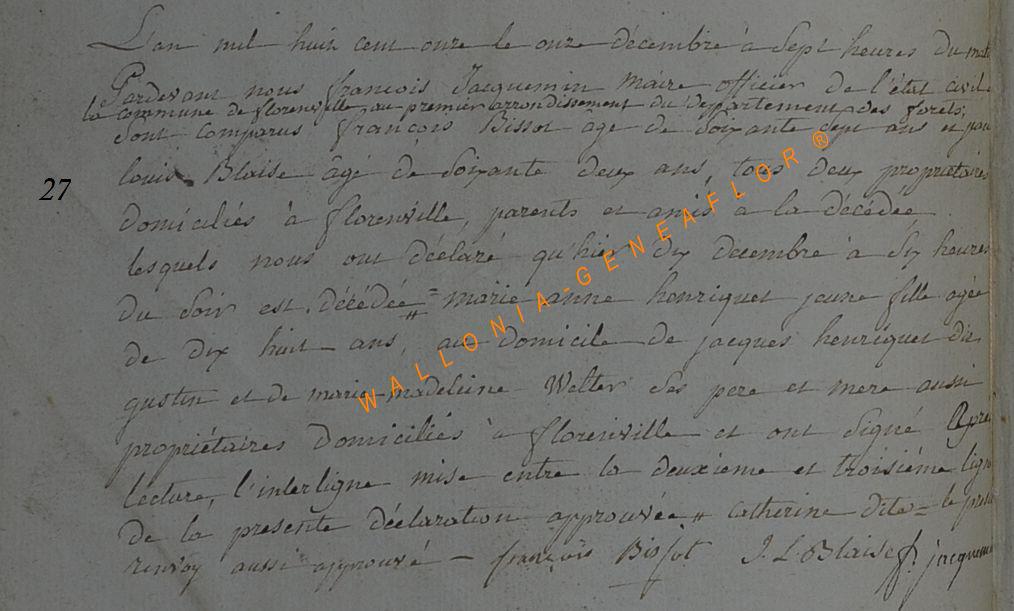 L'an mil huit cent onze le onze décembre à Sept heures du mati
Pardevant nous françois Jacquemin Maire officier de l'état civil
la commune de florenville au premier arrondissement du Departement des forets,
Sont Comparus françois Bissot age de Soixante Sept ans et jean
louis Blaise âgé de Soixante deux ans, tous deux propriétaires
domiciliés à florenville, parents et amis à la décédée
lesquels nous ont déclaré qu'hier dix decembre à Six heures
du Soir est décédée = marie anne henriquet jeune fille agée
de dix huit ans, au domicile de jacques henriquet dit
gustin et de marie madeleine Welter Ses pere et mere aussi
propriétaires domiciliés à florenville et ont Signé Apre
lecture, l'interligne mise entre la deuxieme et troisième ligne
de la presente déclaration approuvée = Catherine dite = le prese
renvoy aussi approuvé — françois Bissot J L Blaise f. jacquemin
27
WALLONIA-GENEAFLOR ®